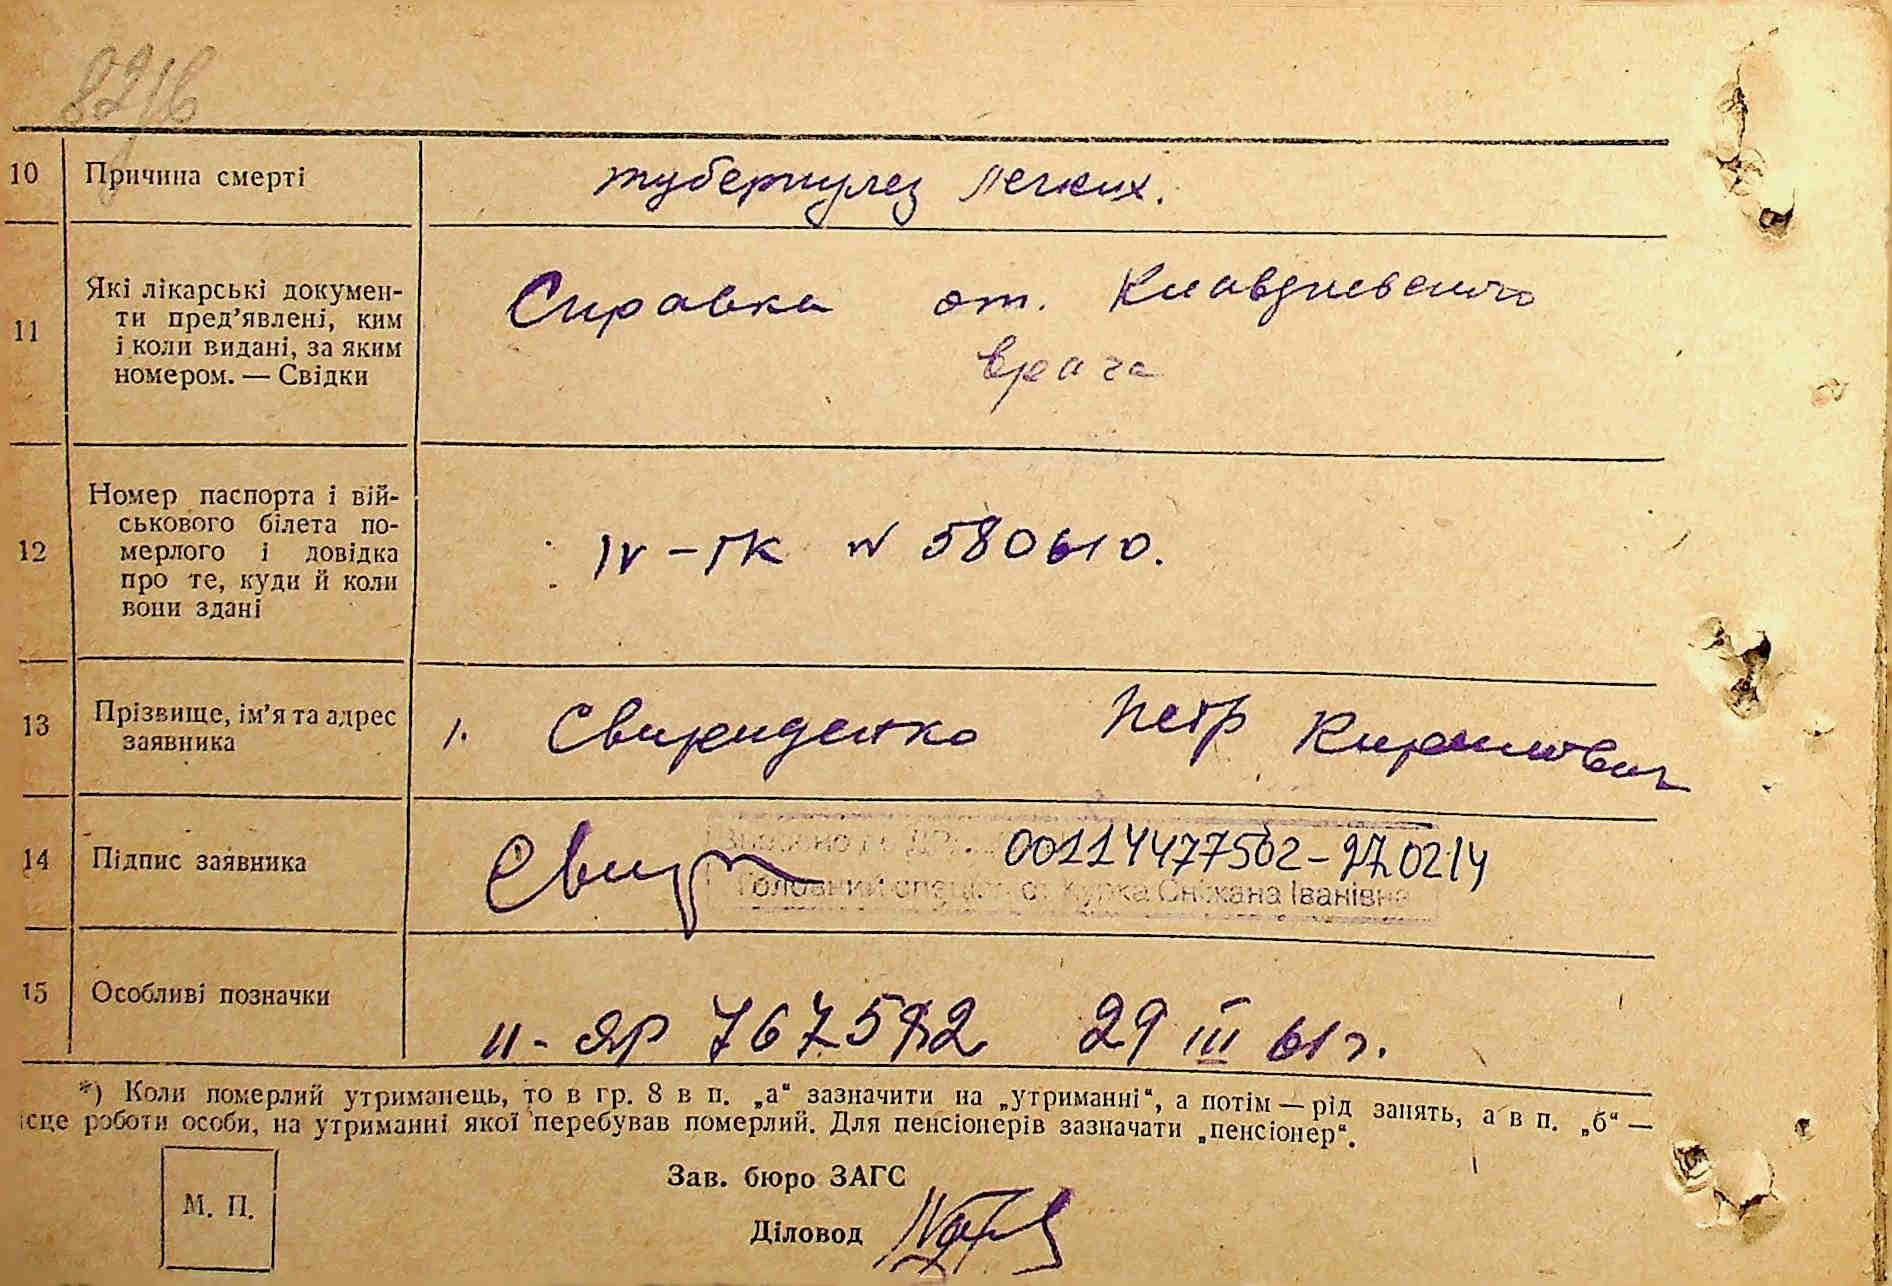 8216
10 Причина смерті туберкулез легких.
11 Які лікарські докумен-
ти пред’явлені, ким
і коли видані, за яким
номером. — Свідки
Справка от. Клавдиевского
врача
12 Номер паспорта і вій-
ськового білета по-
мерлого і довідка
про те, куди й коли
вони здані
IV-ГК № 580610.
13 Прізвище, ім’я та адрес
заявника
1. Свириденко Петр Кирилович
14 Підпис заявника
00114477502-27.02.14
Головний спеціаліст Курка Сніжана Іванівна
15 Особливі позначки
II-ЯР 767592 29 III 61 г.
*) Коли померлий утриманець, то в гр. 8 в п. „а“ зазначити на „утриманні“, а потім — рід занять, а в п. „б“ —
ісце роботи особи, на утриманні якої перебував померлий. Для пенсіонерів зазначати „пенсіонер“.
М. П.
Зав. бюро ЗАГС
Діловод